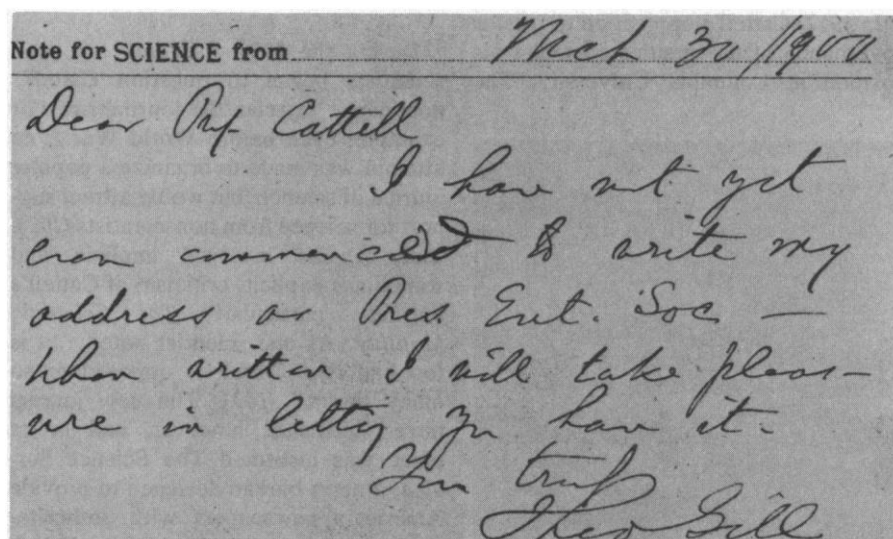 Note for SCIENCE from Mch 30/1900
Dear Prf. Cattell
I have not yet
even commenced to write my
address as Pres. Ent. Soc —
When written I will take pleas-
ure in letting you have it.
Your truly
Theo Gill